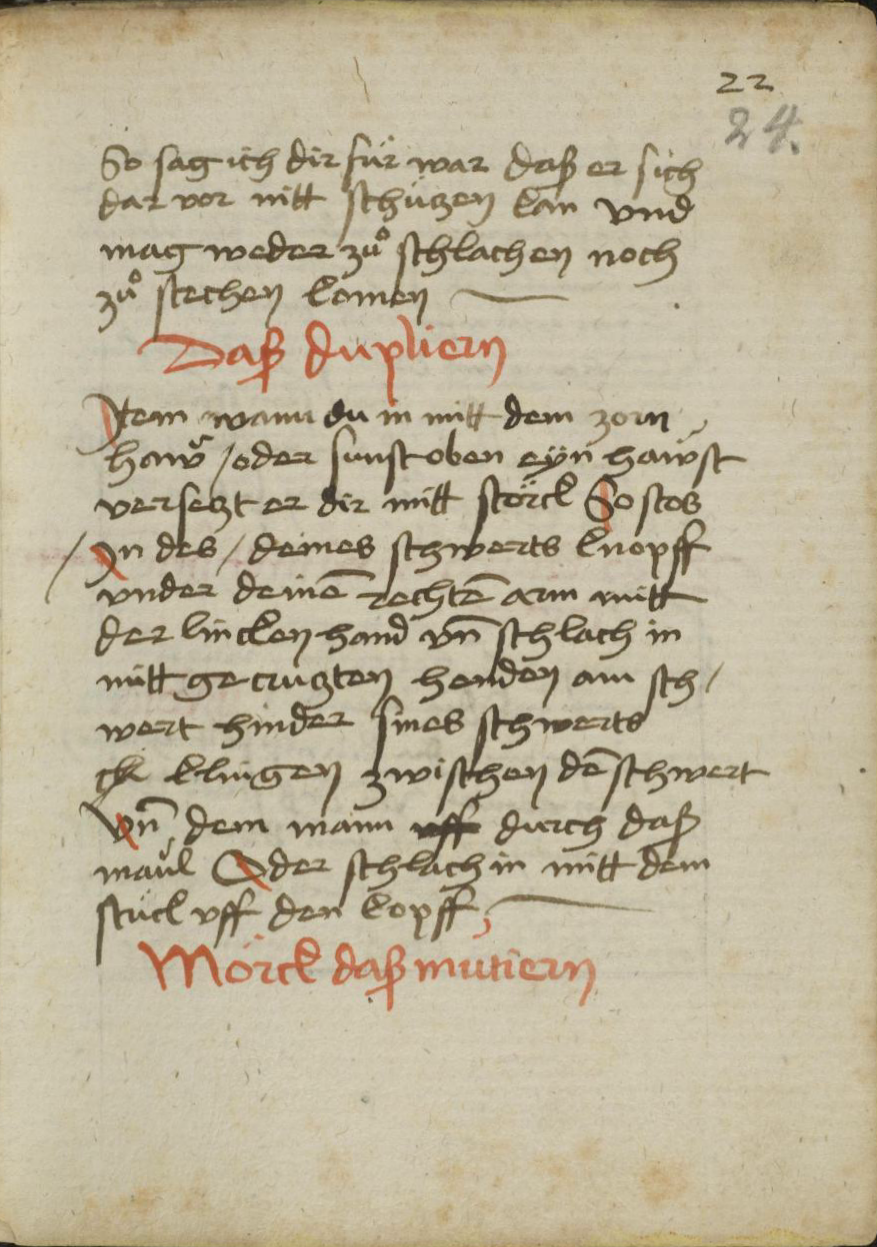 22
24.
So sag ich dir für war daß er sich
dar vor nitt schützen kan vnd
mag weder zuͦ schlachen noch
zuͦ stechen komen
Daß dupliern
Item wann du in mitt dem zorn
haw / oder sunst oben eyn hawst
versetzt er dir mitt störck So stos
/ In des / deines schwerts knopff
vnder deinē rechtē arm mitt
der lincken hand vn̄ schlach in
mitt gecrutzten henden am sch /
wert hinder sines schwerts
klingen zwischen dē schwert
Vn̄ dem mann durch daß
maul Oder schlach in mitt dem
stuck vff den kopff
Mörck daß mutiern